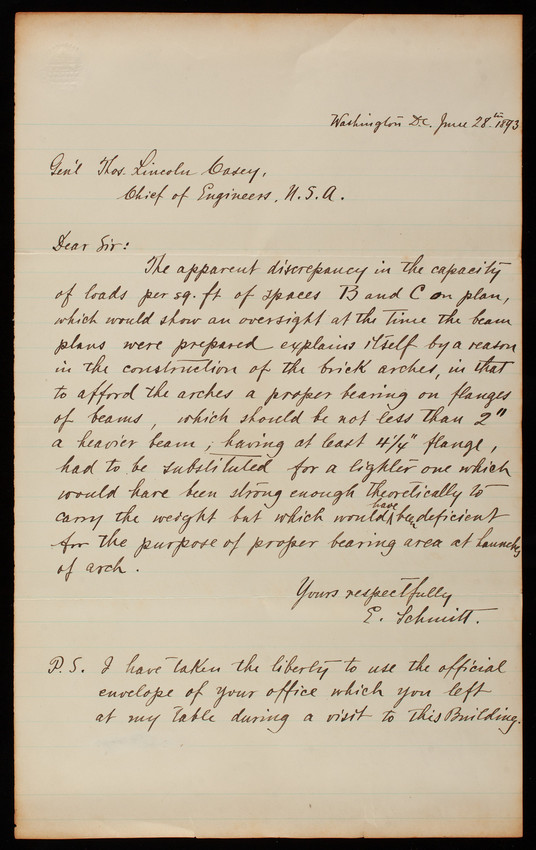 Washington D.C. June 28th 1893
Gen'l Thos. Lincoln Casey,
Chief of Engineers, U.S.A.
Dear Sir:
The apparent discrepancy in the capacity
of loads per sq. ft of spaces B and C on plan,
which would show an oversight at the time the beam
plans were prepared explains itself by a reason
in the construction of the brick arches, in that
to afford the arches a proper bearing on flanges
of beams, which should be not less than 2"
a heavier beam; having at least 4¼" flange,
had to be substituted for a lighter one which
would have been strong enough theoretically to
carry the weight but which would have be deficient
for the purpose of proper bearing area at haunches
of arch.
Yours respectfully
E. Schmitt.
P.S. I have taken the liberty to use the official
envelope of your office which you left
at my table during a visit to this Building.